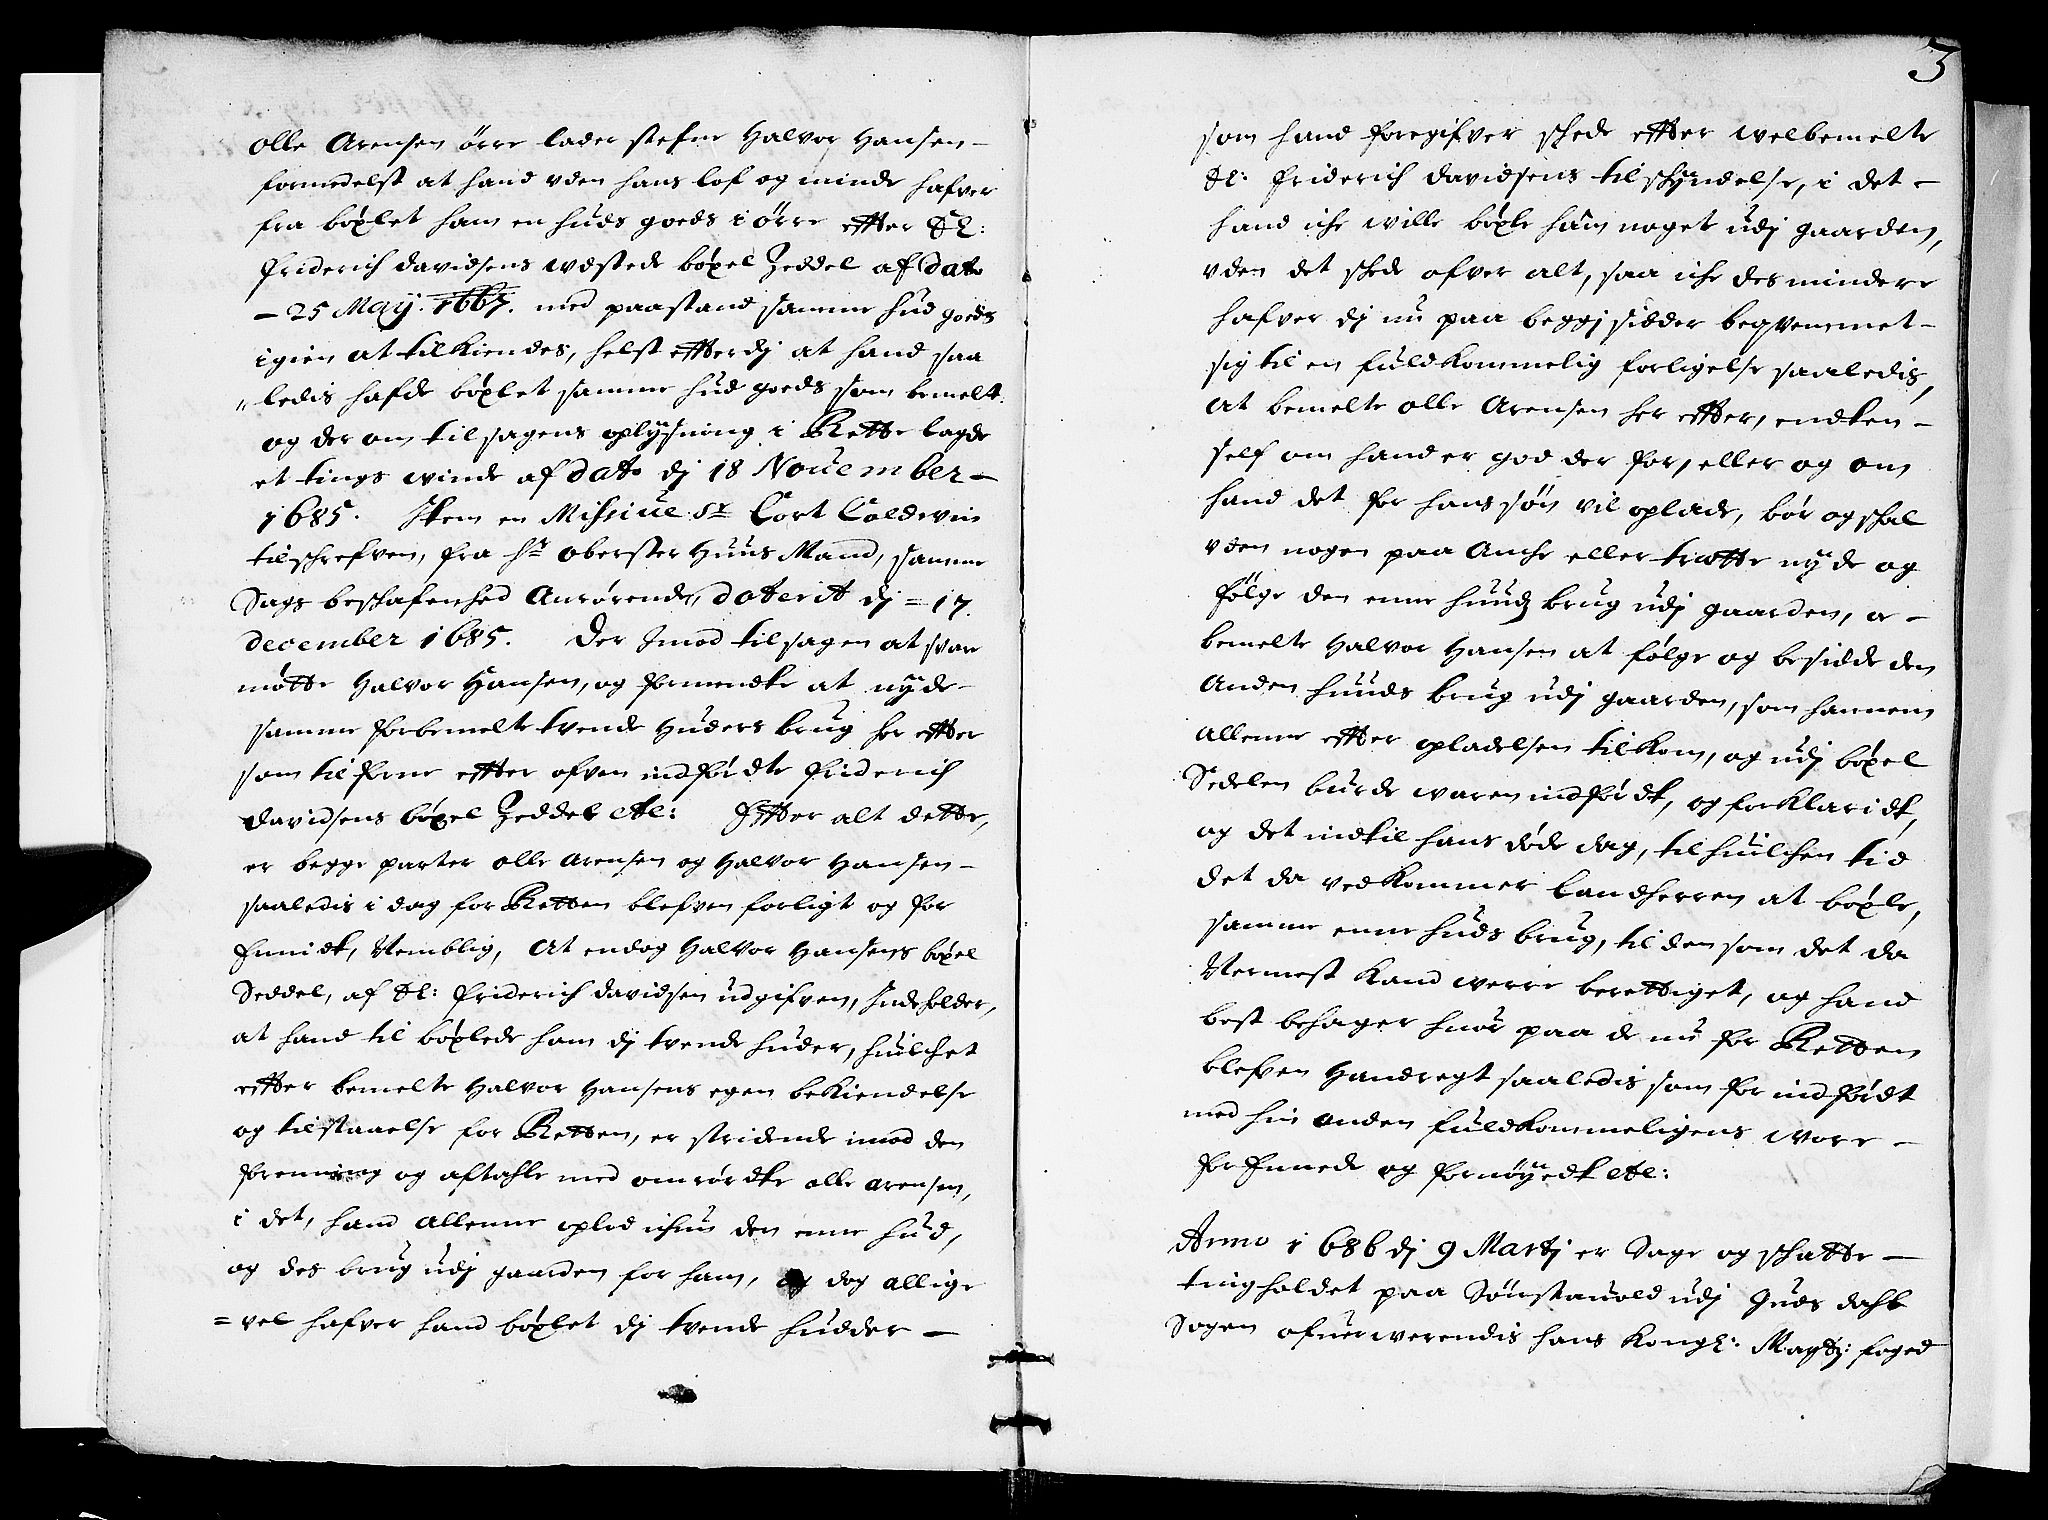 Olle Arensen örre lader stefne Halvor Hansen –
formedelst at hand uden hans lof og minde hafver
fra böxlet ham en huds goeds i örre effter Sl:
Friderich Davidsens udstede böxel Zeddel af Dato
– 25 May. 1667. med paastand samme hud goeds
igien at tilkiendes, helst efterdj at hand saa
„ ledis hafde böxlet samme hud goeds som bemelt.
og der om til sagens oplÿsning i Rette lagde
et tings winde af dato dj 18 November –
1685. Item en Missive Sr Cort Coldevin
tilschrefven, fra Hr Oberster Huus Mand, samme
Sags beschafenhed Anrörende, daterit dj = 17.
december 1685. Der Imod til sagen at svare
mötte Halvor Hansen, og formendte at nÿde –
samme forbemelte tvende Huders brug her effter
som til forne effter ofven indfördte Friderich
Davidsens böxel Zeddel etc: Effter alt dette,
er begge parter olle Arensen og Halvor Hansen –
saaledis i dag for Retten blefven forligt og for
Ennidt, Nemblig, At endog Halvor Hansens böxel
Seddel, af Sl: Friderich Davidsen udgifven, Indeholder,
at hand til böxlede ham dj tvende huder, huilchet
effter bemelte Halvor Hansens egen bekiendelse
og tilstaaelse for Retten, er stridende imod den
forenning og aftahle med omrördte olle Arensen,
i det, hand allenne oplod ichun den enne hud,
og des brug udj gaarden for ham, og dog allige
= vel hafver hand böxlet dj tvende hudder –
3
som hand foregifver schede effter welbemelte
Sl: Friderich Davidsens tilschÿndelse, i det –
hand iche wille böxle ham noget udj gaarden,
uden det schede ofver alt, saa iche des mindere
hafver dj nu paa beggj sidder beqvemmet –
sig til en fuldkommelig forligelse saaledis,
At bemelte olle Arensen her effter, endten –
self om hand er god der for, eller og om
hand det for hans sön vil oplade, bör og schal
uden nogen paa Anche eller trætte nÿde og
fölge den enne huuds brug udj gaarden, og –
bemelte Halvor Hansen at fölge og besidde den
Anden huuds brug udj gaarden, som hannem
allenne effter opladelsen tilkom, og udj böxel
Sedelen burde waren indfördt, og forklaridt,
og det indtil hans döde dag, til huilchen tid
det da vedkommer Landherren at böxle,
samme enne huds brug, til den som det da
Nermest kand werre berettiget, og hand
best behager huor paa de nu for Retten
blefven Handregt saaledis som for indfördt
med hin anden fuldkommeligens wore –
for Ennede og fornöÿedt etc:
Anno 1686 dj 9 Martj er Sage og schatte –
ting holdet paa Sönstauold udj Guds dahls
Sogen ofuerwerendis hans Kongl: Maytz: foged